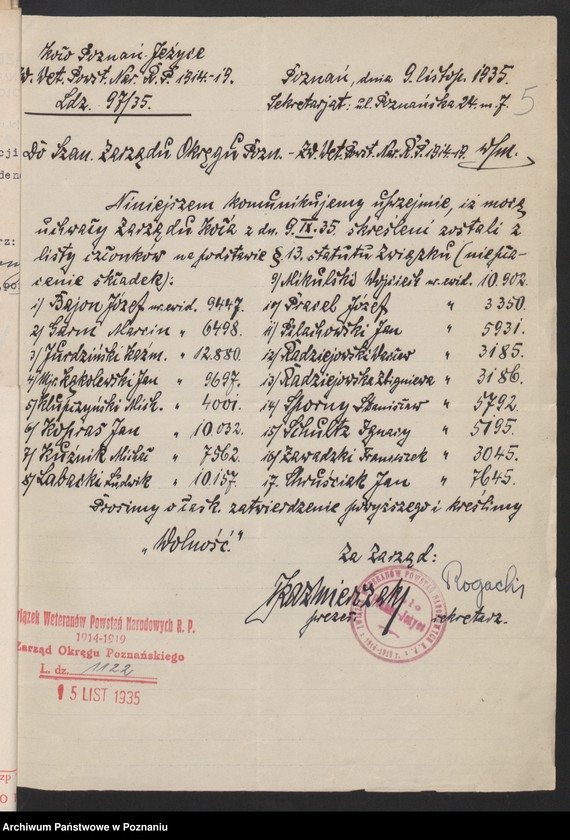 Koło Poznań Jeżyce
Zw. Wet. Powst. Nar. R.P. 1914-19.
Ldz. 97/35.
Poznań, dnia 9. listop. 1935.
Sekretarjat: ul. Poznańska 24. m. 7.
5
Do Szan. Zarządu Okręgu Pozn. - Zw. Wet. Powst. Nar. R.P. 1914-19. w/m.
Niniejszem komunikujemy uprzejmie, iż mocą
uchwały Zarządu Koła z dn. 9. IX. 35. skreśleni zostali z
listy członków na podstawie § 13. statutu związku (niepła-
cenie składek):
1/ Bajon Józef nr. ewid. 9447.
2/ Marcin " 6498.
3/ Jurdziński Kazm. " 12.880.
4/ Kąkolewski Jan " 9697.
5/ Klupczyński Mich. " 4001.
6/ Kopras Jan " 10.032.
7/ Kuźnik " 7562.
8/ Labacki Ludwik " 10.157.
9/ Mikulski Wojciech nr. ewid. 10.902.
10/ Józef " 3350.
11/ Szlachowski Jan " 5931.
12/ Radziejowski " 3185.
13/ Radziejowska Zbigniewa " 3186.
14/ Sporny Stanisław " 5792.
15/ Schultz Ignacy " 5195.
16/ Zawadzki Franciszek " 3045.
17. Chruściak Jan " 7645.
Prosimy o łask. zatwierdzenie powyższego i kreślimy
"Wolność."
Za Zarząd:
Kaźmierczak Rogacki
prezes sekretarz.
Związek Weteranów Powstań Narodowych R. P.
1914-1919
Zarząd Okręgu Poznańskiego
L. dz. 1122
15 LIST 1935
Archiwum Państwowe w Poznaniu